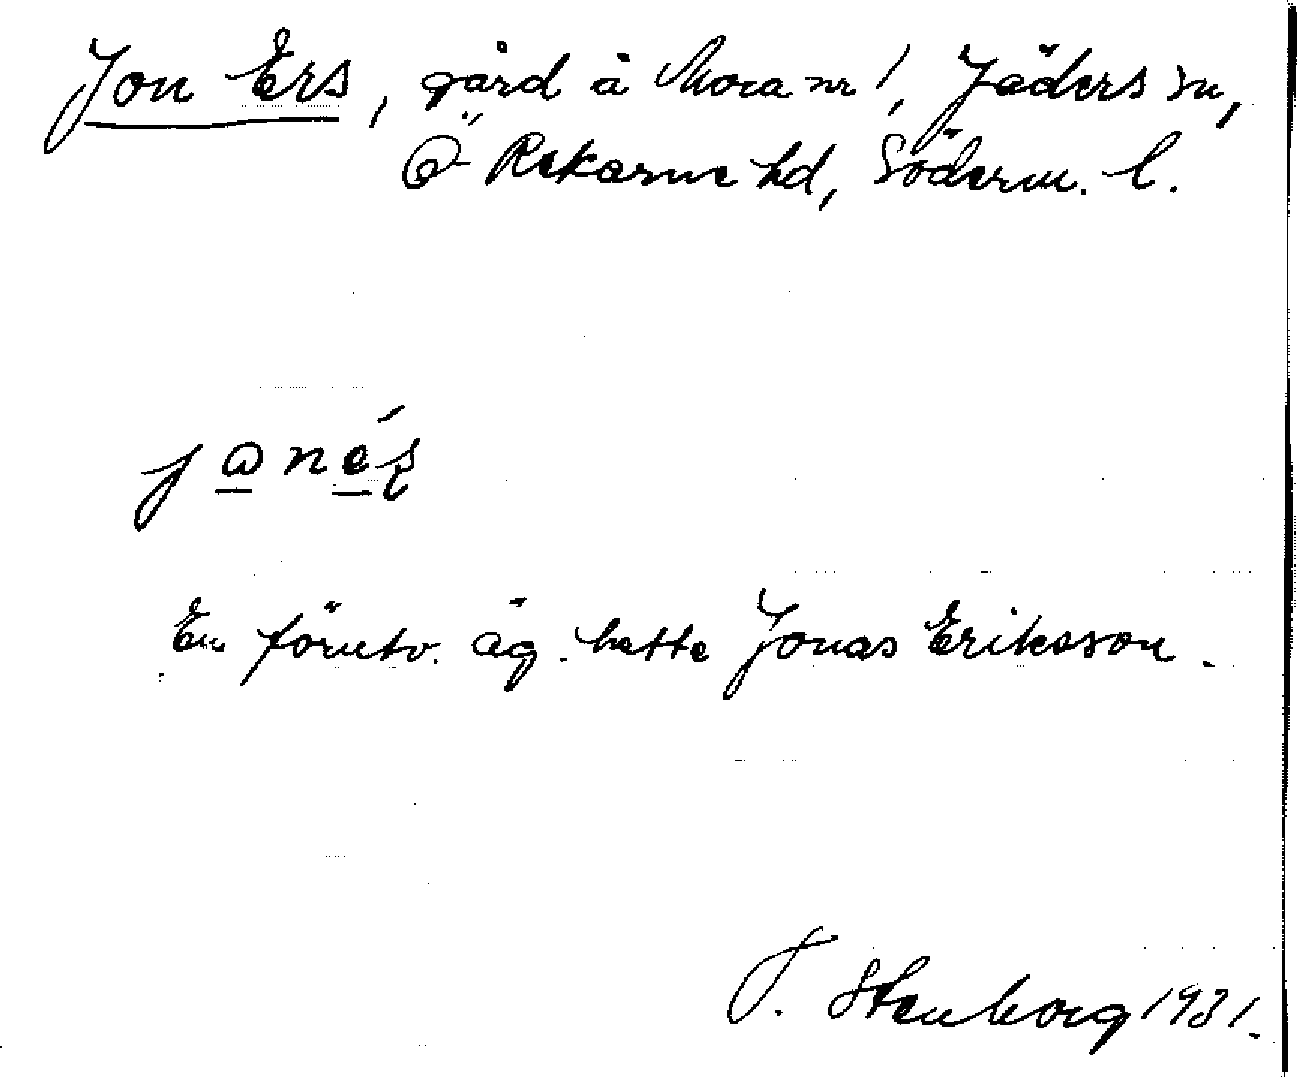 Jon Ers, gård å Mora nr 1, Jäders sn,
Ö Rekarne hd, Söderm. l.
En föreutv. äg. hette Jonas Eriksson.
T. Stenborg 1931.